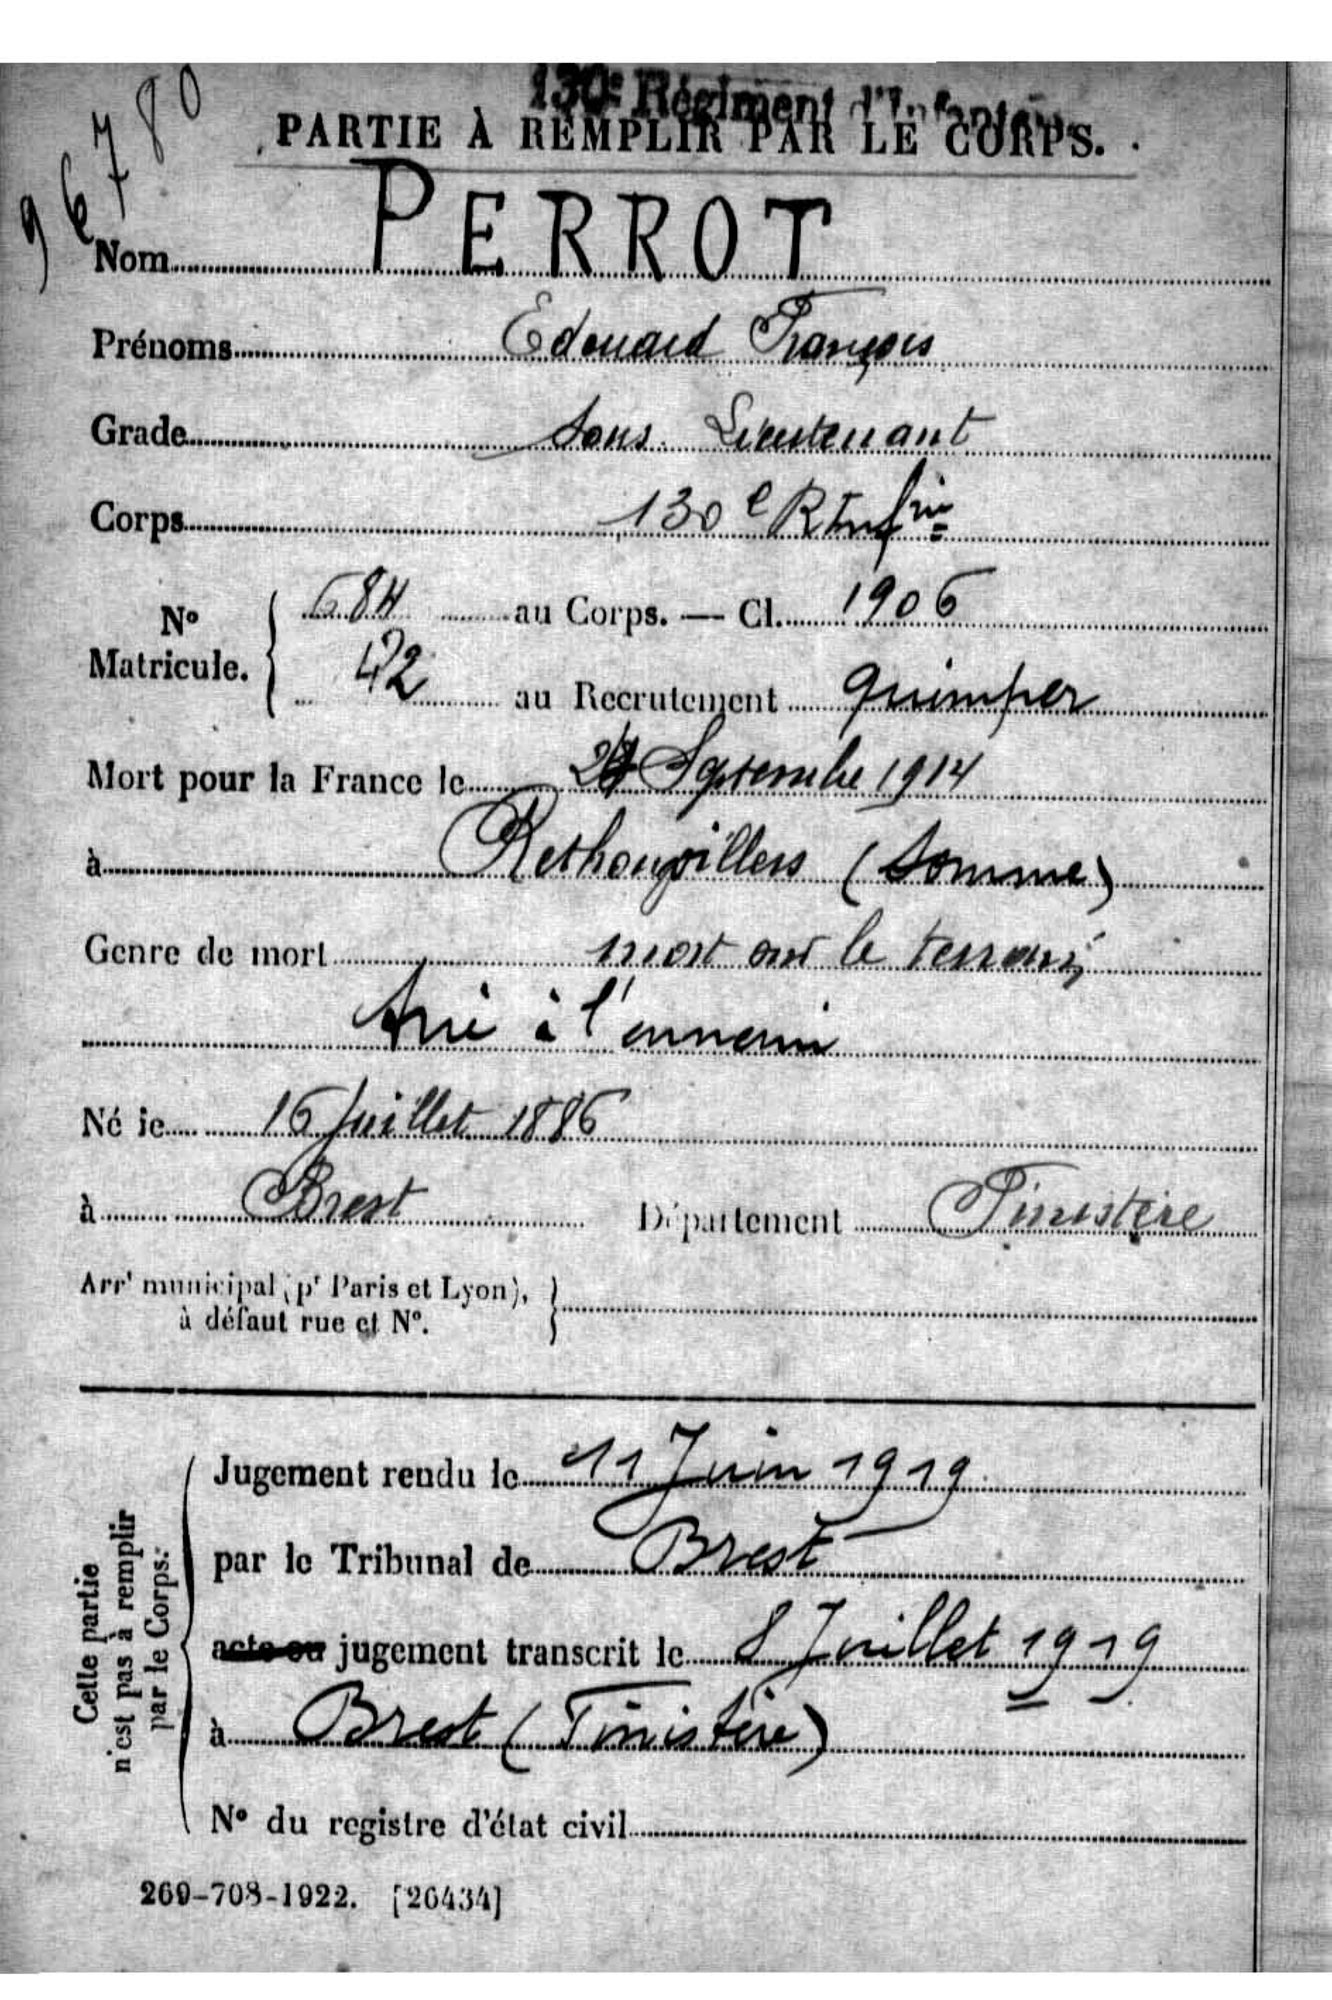 96780
130e Régiment d'Infanterie
PARTIE À REMPLIR PAR LE CORPS.
Nom PERROT
Prénoms Edouard François
Grade Sous Lieutenant
Corps 130e R Infrie
No Matricule. 684 au Corps. — Cl. 1906
472 au Recrutement Quimper
Mort pour la France le Septembre 1914
à Rethonvillers (Somme)
Genre de mort mort sur le terrain
Tué à l'ennemi
Né le 16 Juillet 1886
à Brest Département Finistère
Arrt municipal (pr Paris et Lyon),
à défaut rue et No.
Cette partie
n'est pas à remplir
par le Corps.
Jugement rendu le 11 Juin 1919
par le Tribunal de Brest
acte ou jugement transcrit le 8 Juillet 1919
à Brest (Finistère)
No du registre d'état civil
269-708-1922. [26434]